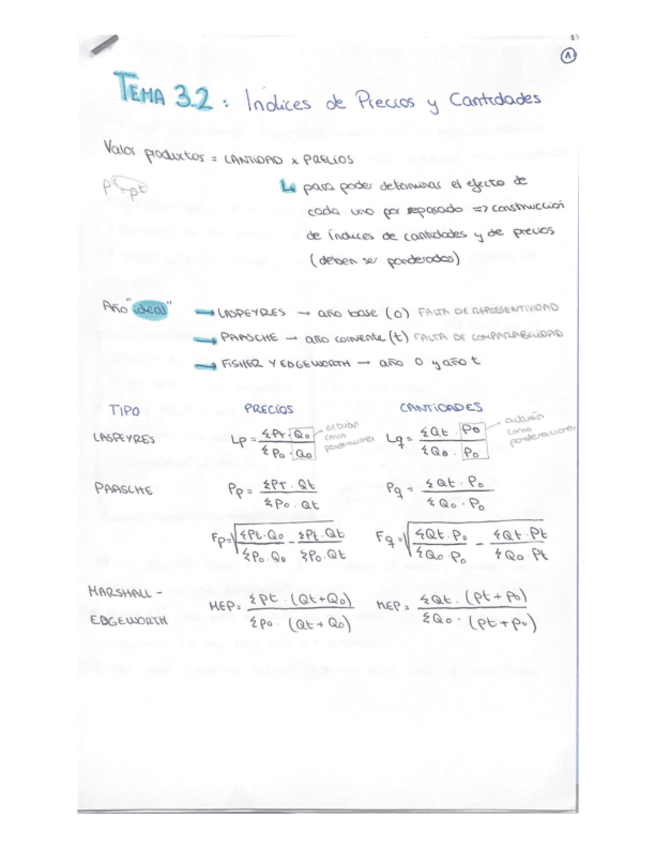 ①
TEMA 3.2 : Índices de Precios y Cantidades
Valor productos = CANTIDAD x PRECIOS
P⁰ Pt
↳ para poder determinar el efecto de
cada uno por separado => construcción
de índices de cantidades y de precios
(deben ser ponderados)
Año "ideal" → LASPEYRES → año base (0) FALTA DE REPRESENTIVIDAD
→ PAASCHE → año corriente (t) FALTA DE COMPARABILIDAD
→ FISHER Y EDGEWORTH → año 0 y año t
TIPO PRECIOS CANTIDADES
LASPEYRES Lp = Σ Pt · Q₀ / Σ P₀ · Q₀ actúan como ponderaciones Lq = Σ Qt · P₀ / Σ Q₀ · P₀ actúan como ponderaciones
PAASCHE Pp = Σ Pt · Qt / Σ P₀ · Qt Pq = Σ Qt · P₀ / Σ Q₀ · P₀
Fp = √ Σ Pt · Q₀ / Σ P₀ · Q₀ - Σ Pt · Qt / Σ P₀ · Qt Fq = √ Σ Qt · P₀ / Σ Q₀ P₀ - Σ Qt · Pt / Σ Q₀ · Pt
MARSHALL -
EDGEWORTH MEP = Σ Pt · (Qt + Q₀) / Σ P₀ · (Qt + Q₀) MEP = Σ Qt · (Pt + P₀) / Σ Q₀ · (Pt + P₀)